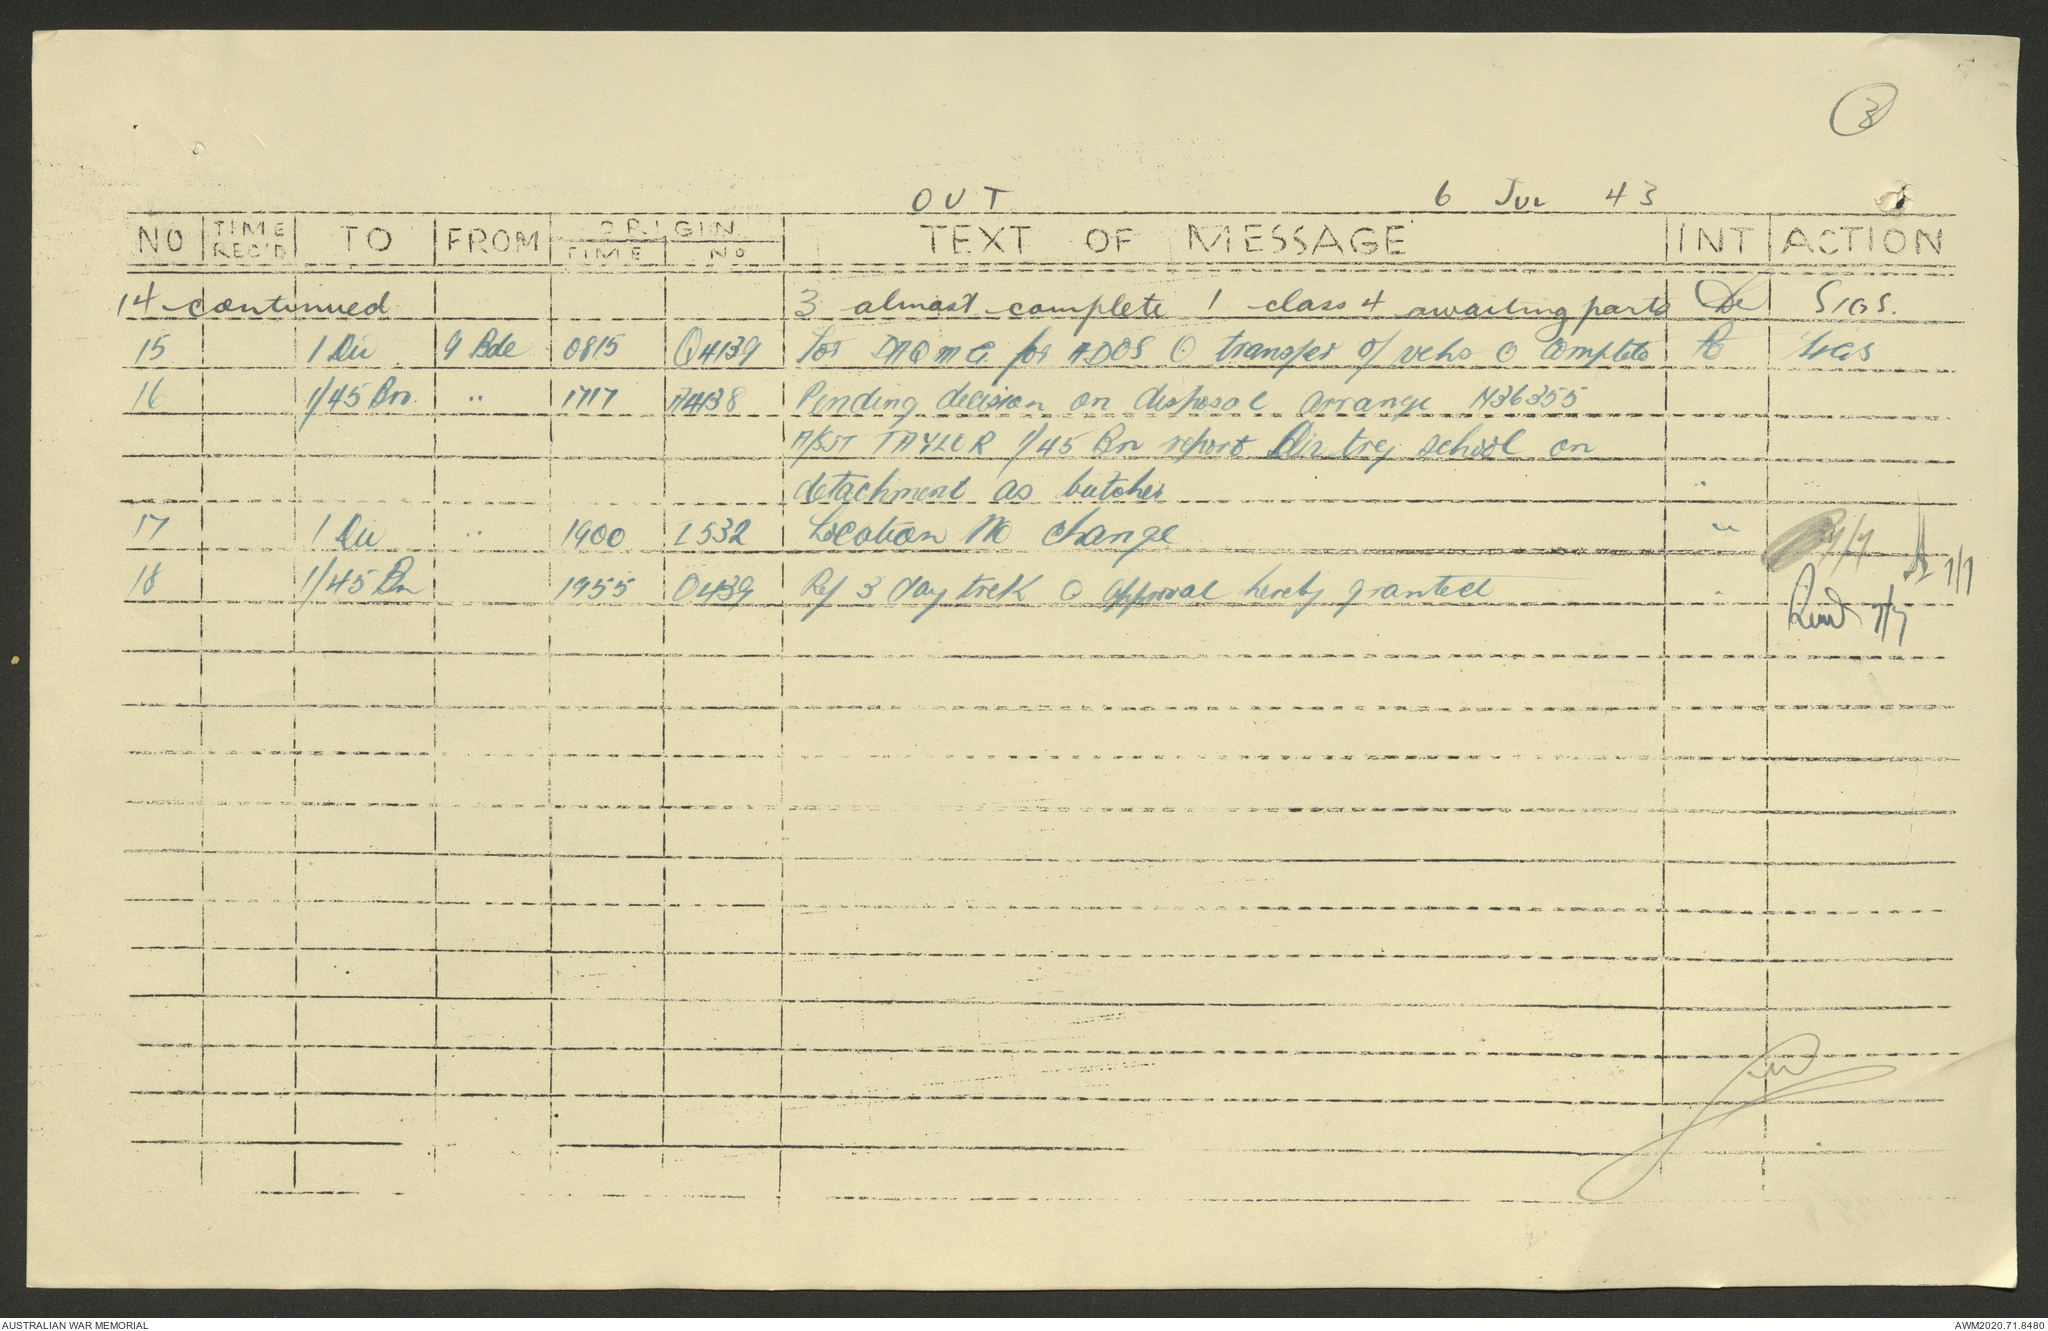 3
OUT 6 Jul 43
NO TIME REC'D TO FROM ORIGIN TIME NO TEXT OF MESSAGE INT ACTION
14 continued 3 almost complete 1 class 4 awaiting parts SIGS.
15 1 Div 9 Bde 0815 Q4139 For DAQMG for ADOS O transfer of vehs O complete
16 1/45 Bn. " 1717 A4138 Pending decision on disposal arrange N36355
A/SJT TAYLOR 1/45 Bn report Div trg school on
detachment as butcher "
17 1 Div " 1900 I532 Location No change " 7/7
18 1/45 Bn 1955 O439 Ref 3 day trek O approval hereby granted " 7/7
7/7
AUSTRALIAN WAR MEMORIAL AWM2020.71.8480